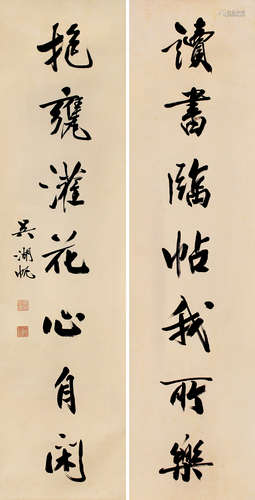 讀書臨帖我所樂
抱甕灌花心自閑
吳湖帆